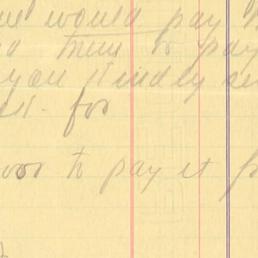 would pay
them to pay
you kindly se
for
poor to pay it f